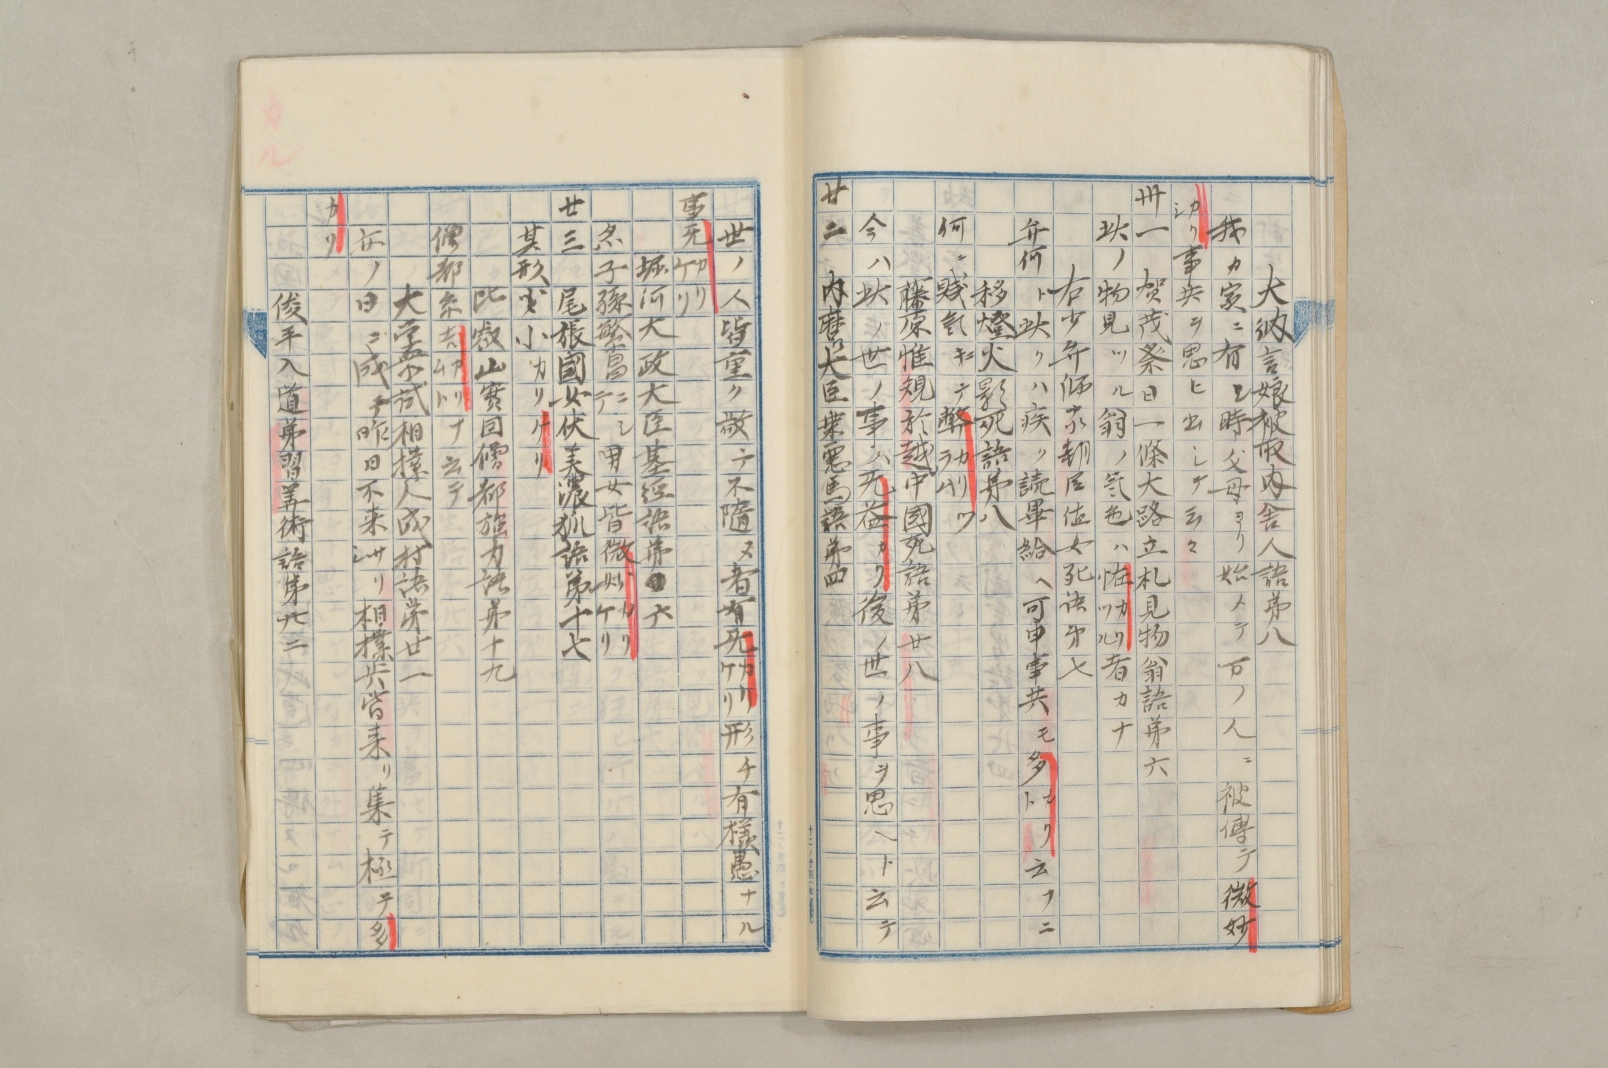 大納言娘被取内舎人語第八
我カ家ニ有シ時父母ヨリ始メテ万ノ人ニ被傅テ微妙
カリシ事共ヲ思ヒ出シテ云々
卅一 賀茂祭日一條大路立札見物翁語第六
此ノ物見ツル翁ノ気色ハ怪カリツル者カナ
右少弁師家朝臣値女死語第七
弁何ト此クハ疾ク読畢給ヘ可申事共モ多カリト云フニ
移燈火影死語第八
何ニ賤気ニテ弊カリツラハ
藤原惟規於越中國死語第廿八
今ハ此ノ世ノ事ハ无益カリ後ノ世ノ事ヲ思ヘト云テ
廿二 内麿大臣乗悪馬語第四
世ノ人皆重ク敬テ不随ヌ者无カリケリ形チ有様愚ナル
事无カリケリ
堀河大政大臣基経語第六
尓子孫繁昌ニシテ男女皆微妙カリケリ
廿三 尾張國女伏美濃狐語第十七
其形チ小カリケリ
比叡山實因僧都強力語第十九
僧都糸吉カリナムト云テ
大学衆試相撲人成村語第廿一
亦ノ日ニ成テ昨日不来サリ相撲共皆来リ集テ極テ多
カリ
俊平入道弟習算術語第廿二
カル